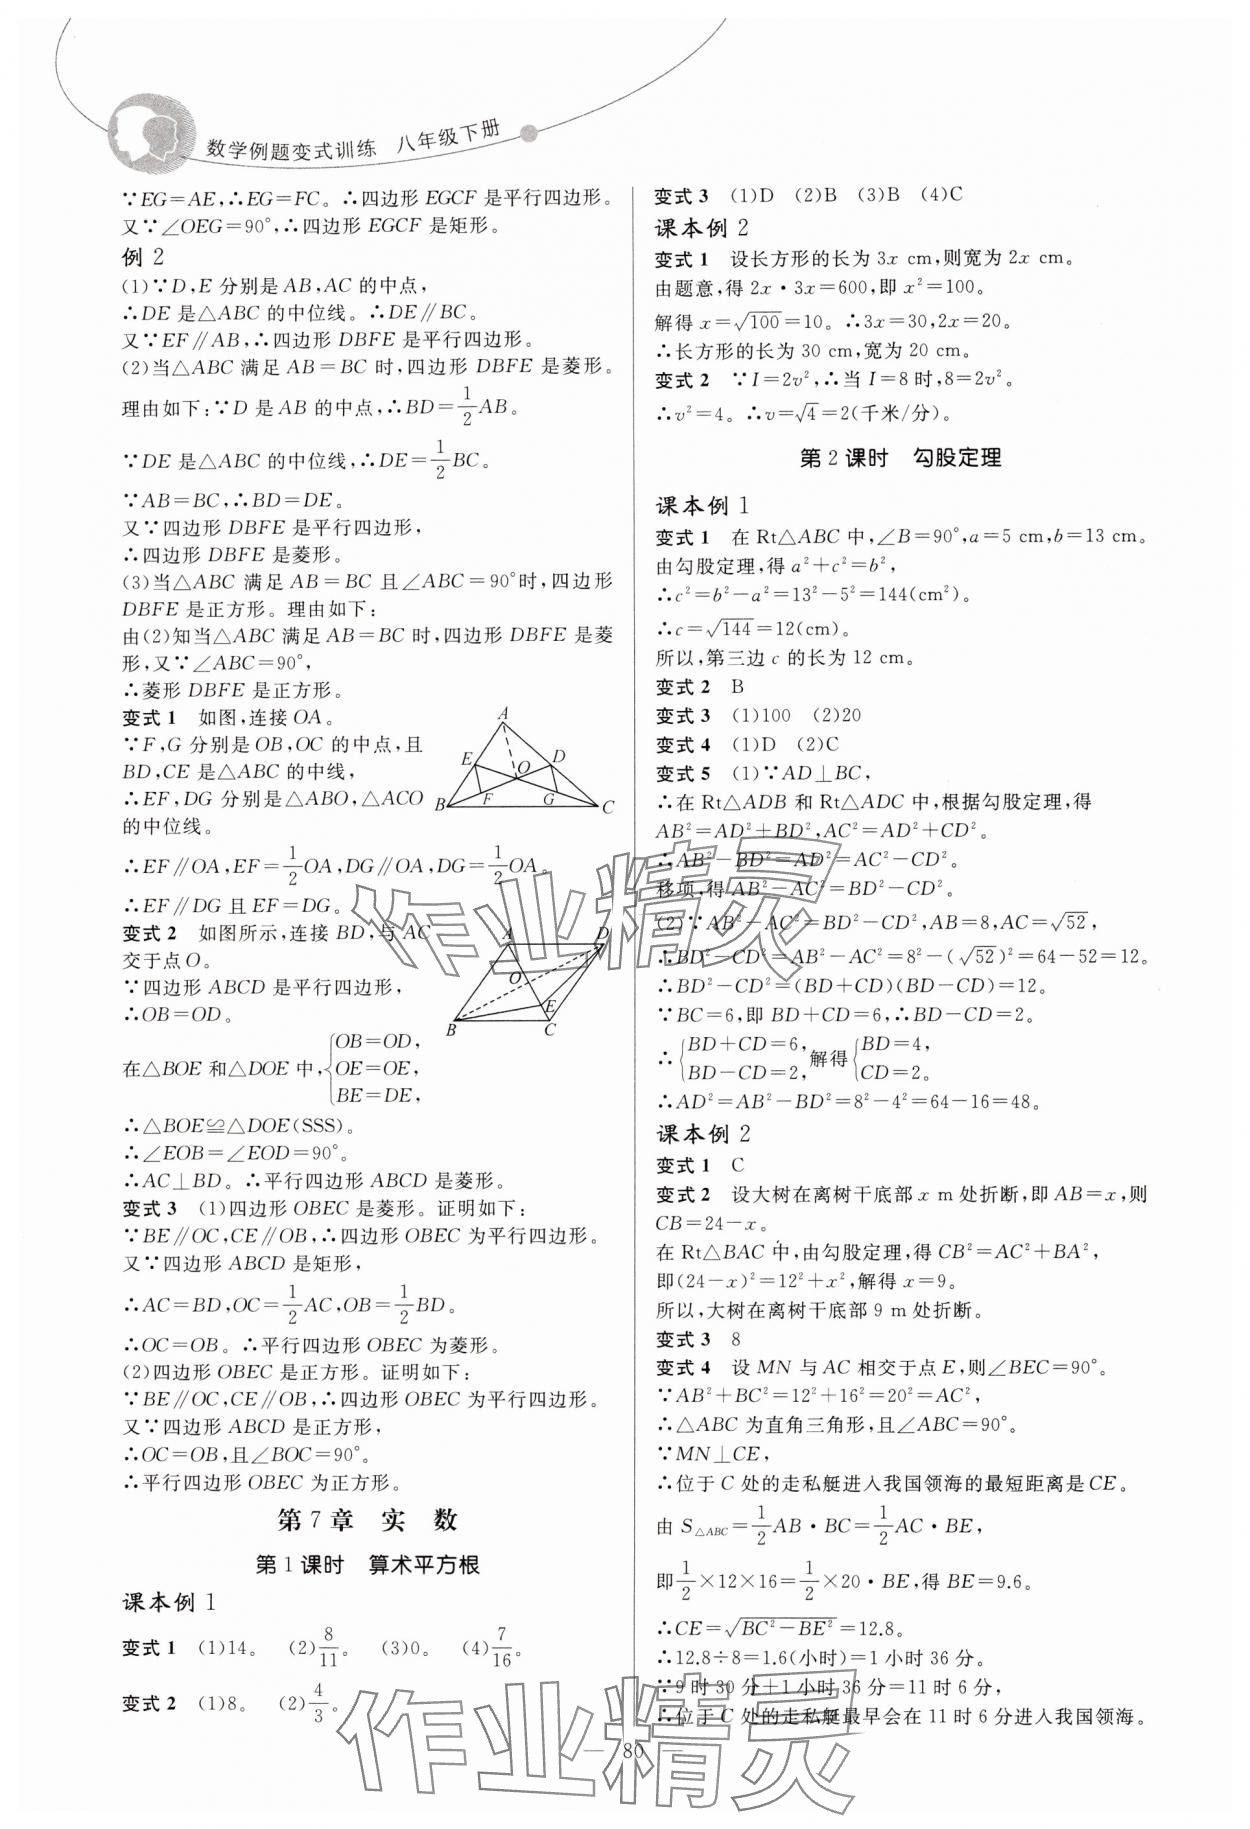 数学例题变式训练 八年级下册
∵EG=AE,∴EG=FC。∴四边形 EGCF 是平行四边形。
又∵∠OEG=90°,∴四边形 EGCF 是矩形。
例 2
(1)∵D,E 分别是 AB,AC 的中点,
∴DE 是△ABC 的中位线。∴DE∥BC。
又∵EF∥AB,∴四边形 DBFE 是平行四边形。
(2)当△ABC 满足 AB=BC 时,四边形 DBFE 是菱形。
理由如下:∵D 是 AB 的中点,∴BD=1/2 AB。
∵DE 是△ABC 的中位线,∴DE=1/2 BC。
∵AB=BC,∴BD=DE。
又∵四边形 DBFE 是平行四边形,
∴四边形 DBFE 是菱形。
(3)当△ABC 满足 AB=BC 且∠ABC=90°时,四边形
DBFE 是正方形。理由如下:
由(2)知当△ABC 满足 AB=BC 时,四边形 DBFE 是菱
形,又∵∠ABC=90°,
∴菱形 DBFE 是正方形。
变式 1 如图,连接 OA。
∵F,G 分别是 OB,OC 的中点,且
BD,CE 是△ABC 的中线,
∴EF,DG 分别是△ABO,△ACO
的中位线。
A
E D
O
B F G C
∴EF∥OA,EF=1/2 OA,DG∥OA,DG=1/2 OA。
∴EF∥DG 且 EF=DG。
变式 2 如图所示,连接 BD,与 AC
交于点 O。
∵四边形 ABCD 是平行四边形,
∴OB=OD。
A D
O
E
B C
在△BOE 和△DOE 中,{OB=OD,
OE=OE,
BE=DE,
∴△BOE≌△DOE(SSS)。
∴∠EOB=∠EOD=90°。
∴AC⊥BD。∴平行四边形 ABCD 是菱形。
变式 3 (1)四边形 OBEC 是菱形。证明如下:
∵BE∥OC,CE∥OB,∴四边形 OBEC 为平行四边形。
又∵四边形 ABCD 是矩形,
∴AC=BD,OC=1/2 AC,OB=1/2 BD。
∴OC=OB。∴平行四边形 OBEC 为菱形。
(2)四边形 OBEC 是正方形。证明如下:
∵BE∥OC,CE∥OB,∴四边形 OBEC 为平行四边形。
又∵四边形 ABCD 是正方形,
∴OC=OB,且∠BOC=90°。
∴平行四边形 OBEC 为正方形。
第 7 章 实 数
第 1 课时 算术平方根
课本例 1
变式 1 (1)14。 (2)8/11。 (3)0。 (4)7/16。
变式 2 (1)8。 (2)4/3。
变式 3 (1)D (2)B (3)B (4)C
课本例 2
变式 1 设长方形的长为 3x cm,则宽为 2x cm。
由题意,得 2x·3x=600,即 x²=100。
解得 x=√100=10。∴3x=30,2x=20。
∴长方形的长为 30 cm,宽为 20 cm。
变式 2 ∵I=2v²,∴当 I=8 时,8=2v²。
∴v²=4。∴v=√4=2(千米/分)。
第 2 课时 勾股定理
课本例 1
变式 1 在 Rt△ABC 中,∠B=90°,a=5 cm,b=13 cm。
由勾股定理,得 a²+c²=b²,
∴c²=b²−a²=13²−5²=144(cm²)。
∴c=√144=12(cm)。
所以,第三边 c 的长为 12 cm。
变式 2 B
变式 3 (1)100 (2)20
变式 4 (1)D (2)C
变式 5 (1)∵AD⊥BC,
∴在 Rt△ADB 和 Rt△ADC 中,根据勾股定理,得
AB²=AD²+BD²,AC²=AD²+CD²。
∴AB²−BD²=AD²=AC²−CD²。
移项,得 AB²−AC²=BD²−CD²。
(2)∵AB²−AC²=BD²−CD²,AB=8,AC=√52,
∴BD²−CD²=AB²−AC²=8²−(√52)²=64−52=12。
∴BD²−CD²=(BD+CD)(BD−CD)=12。
∵BC=6,即 BD+CD=6,∴BD−CD=2。
∴{BD+CD=6, 解得{BD=4,
BD−CD=2, CD=2。
∴AD²=AB²−BD²=8²−4²=64−16=48。
课本例 2
变式 1 C
变式 2 设大树在离树干底部 x m 处折断,即 AB=x,则
CB=24−x。
在 Rt△BAC 中,由勾股定理,得 CB²=AC²+BA²,
即(24−x)²=12²+x²,解得 x=9。
所以,大树在离树干底部 9 m 处折断。
变式 3 8
变式 4 设 MN 与 AC 相交于点 E,则∠BEC=90°。
∵AB²+BC²=12²+16²=20²=AC²,
∴△ABC 为直角三角形,且∠ABC=90°。
∵MN⊥CE,
∴位于 C 处的走私艇进入我国领海的最短距离是 CE。
由 S△ABC=1/2 AB·BC=1/2 AC·BE,
即 1/2×12×16=1/2×20·BE,得 BE=9.6。
∴CE=√(BC²−BE²)=12.8。
∴12.8÷8=1.6(小时)=1 小时 36 分。
∵9 时 30 分+1 小时 36 分=11 时 6 分,
∴位于 C 处的走私艇最早会在 11 时 6 分进入我国领海。
— 80 —
作业精灵
作业精灵